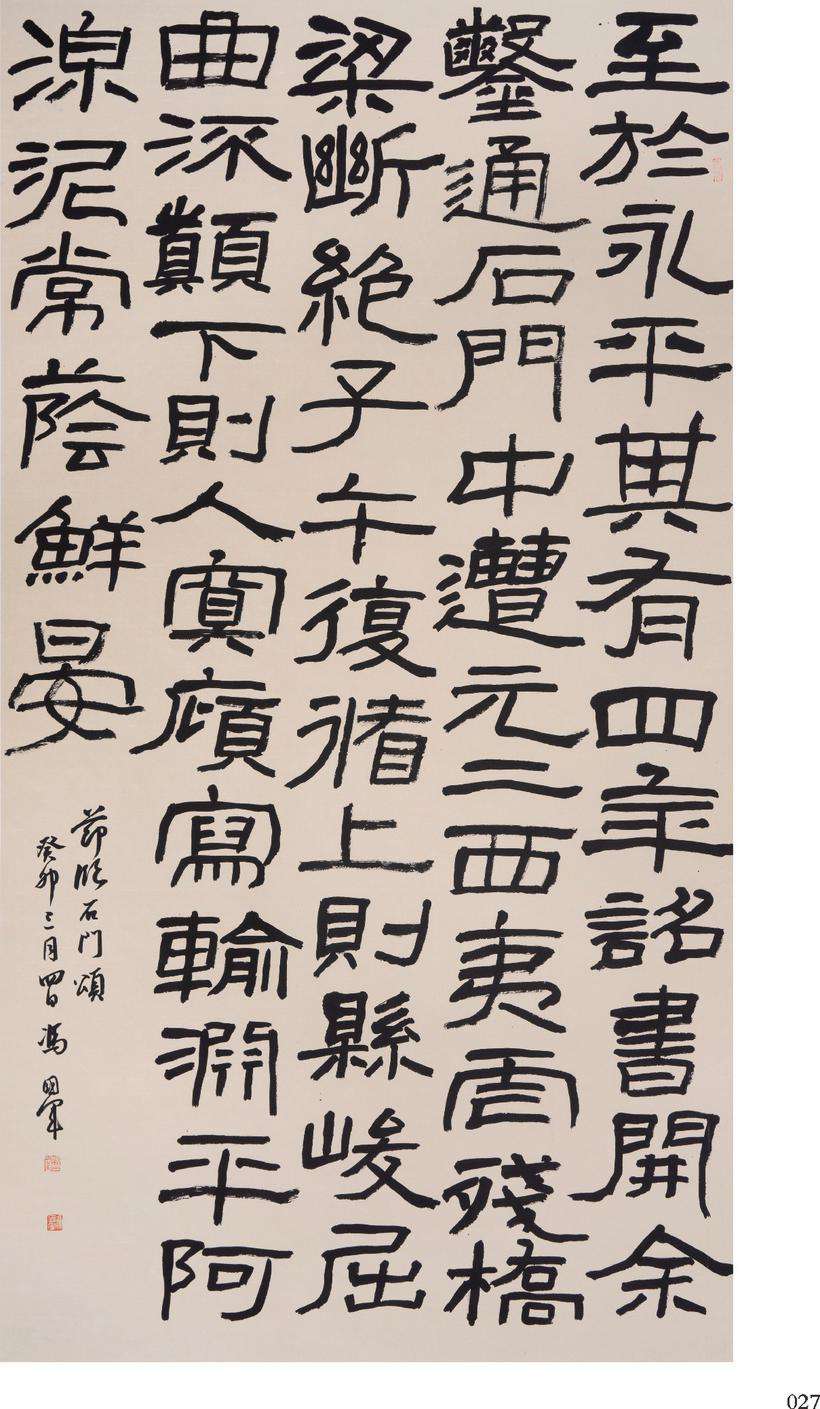 至於永平其有四年詔書開余
鑿通石門中遭元二西夷虐殘橋
梁斷絕子午復循上則縣峻屈
曲流顛下則人寞庼寫輸淵平阿
湶泥常蔭鮮晏
節臨石門頌
癸卯三月四日馮國軍
027